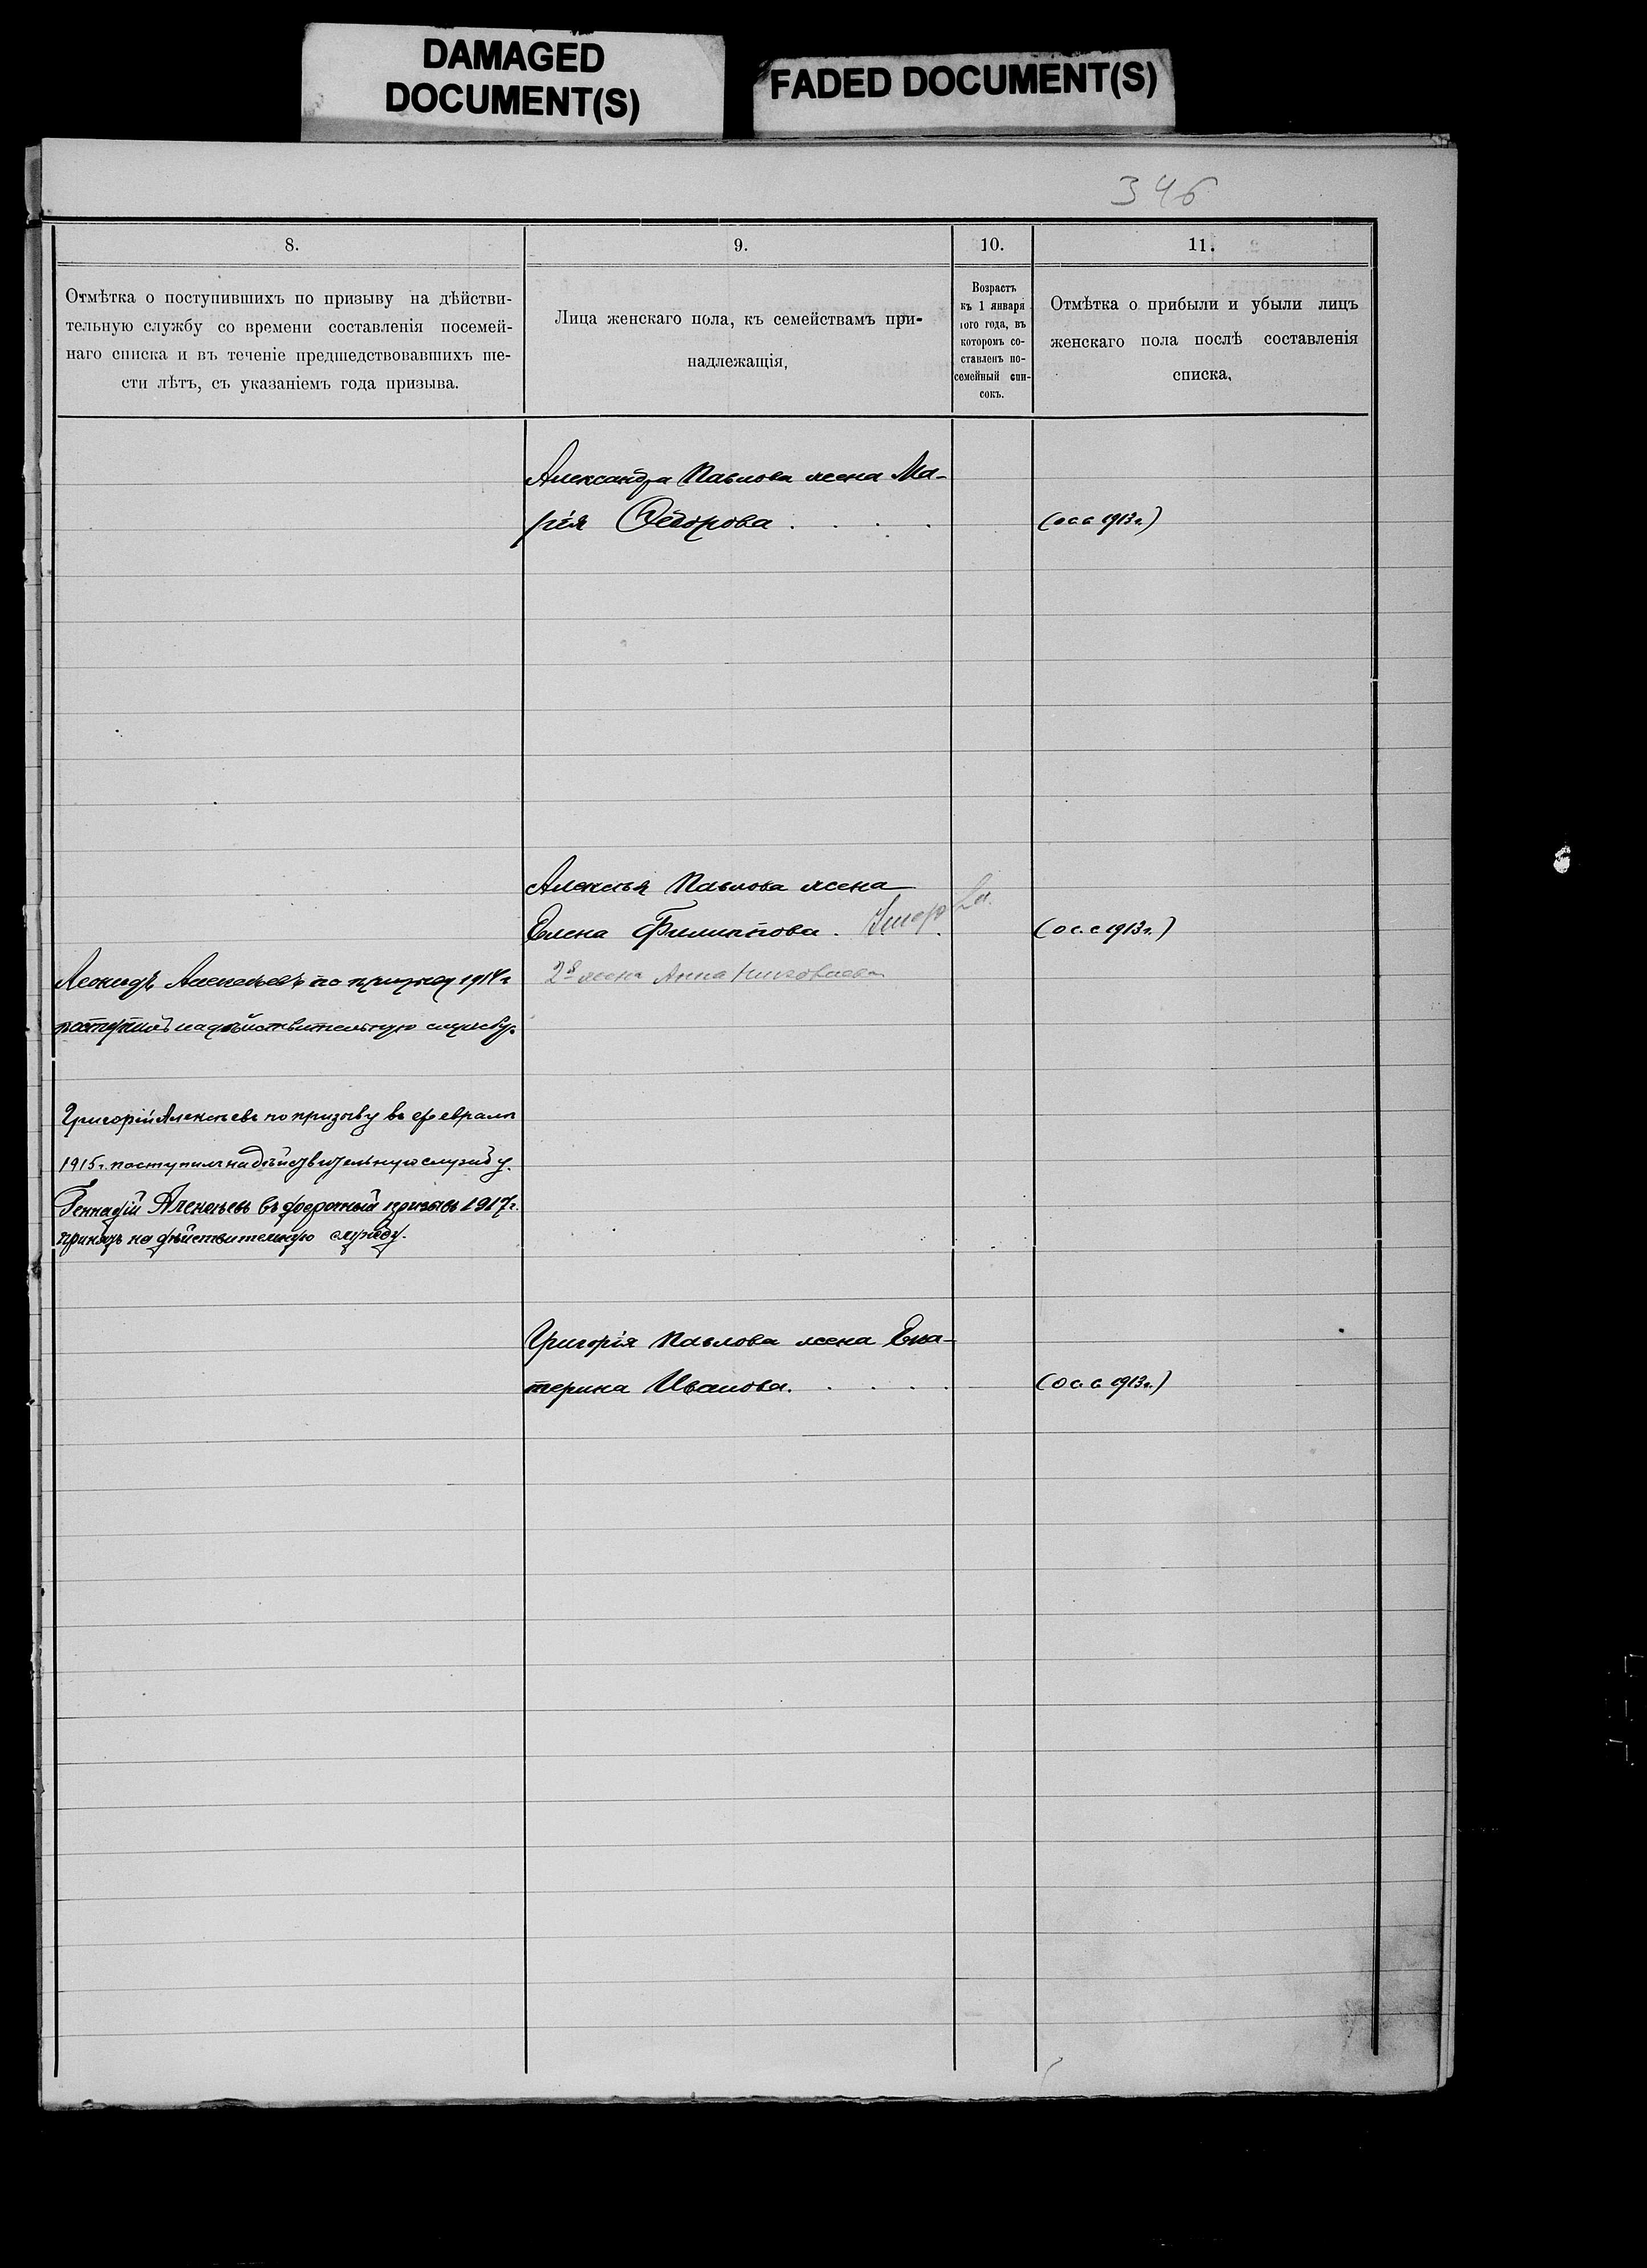 DAMAGED
DOCUMENT(S)
FADED DOCUMENT(S)
346
8.
Отмѣтка о поступившихъ по призыву на дѣйстви-
тельную службу со времени составленія посемей-
наго списка и въ теченіе предшедствовавшихъ ше-
сти лѣтъ, съ указаніемъ года призыва.
9.
Лица женскаго пола, къ семействамъ при-
надлежащія,
10.
Возрастъ
къ 1 января
того года, въ
которомъ со-
ставленъ по-
семейный спи-
сокъ.
11.
Отмѣтка о прибыли и убыли лицъ
женскаго пола послѣ составленія
списка,
Александра Павлова жена Ма-
рія Ѳедорова . . . .
(о с. с 1913 г.)
Алексѣя Павлова жена
Елена Филиппова. Умерла
(о с. с 1913 г.)
2я жена Анна
Леонидъ Алексѣевъ по призыву 1914 г
поступилъ на дѣйствительную службу.
Григорій Алексѣевъ по призыву въ февралѣ
1915 г. поступилъ на дѣйствительную службу.
Геннадій Алексѣевъ въ досрочный призывъ 1917 г.
принятъ на дѣйствительную службу.
Григорія Павлова жена Ека-
терина Иванова. . . . .
(о с. с 1913 г.)